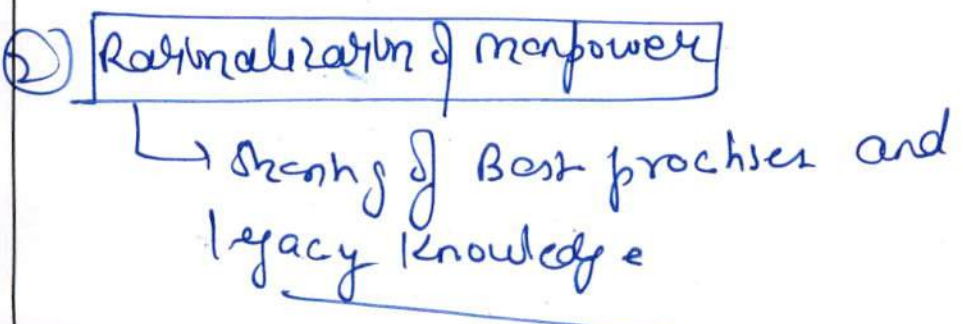 b) Rationalization of manpower
↳ Sharing of Best practises and
legacy Knowledge